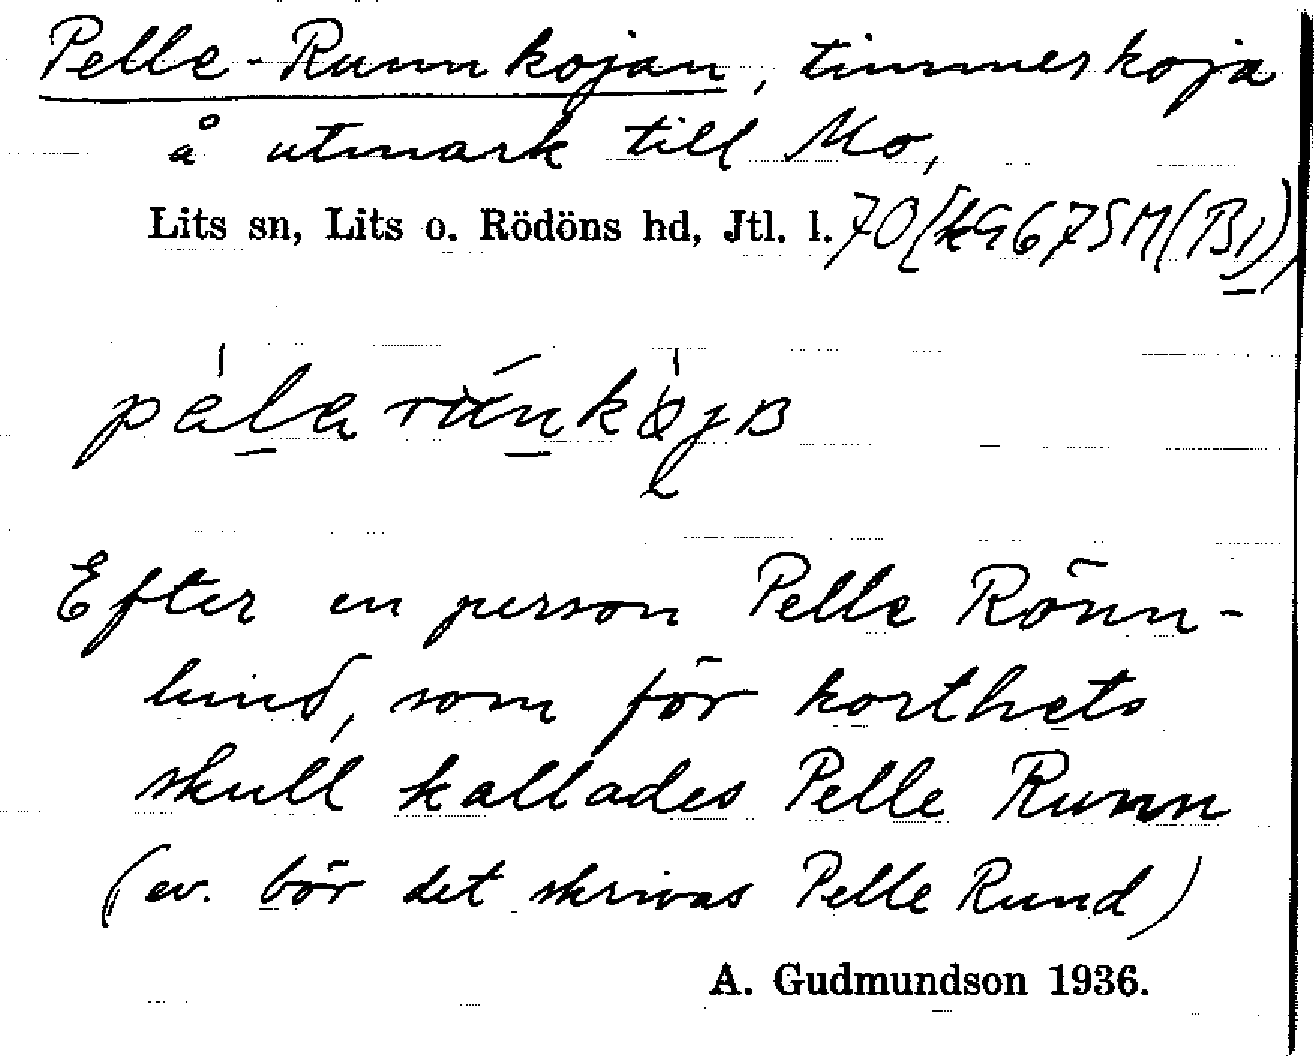 Pelle-Runnkojan, timmerkoja
å utmark till Mo,
Lits sn, Lits o. Rödöns hd, Jtl. l. 70
Efter en person Pelle Rönn-
lund, som för korthets
skull kallades Pelle Runn
(ev. bör det skrivas Pelle Rund)
A. Gudmundson 1936.